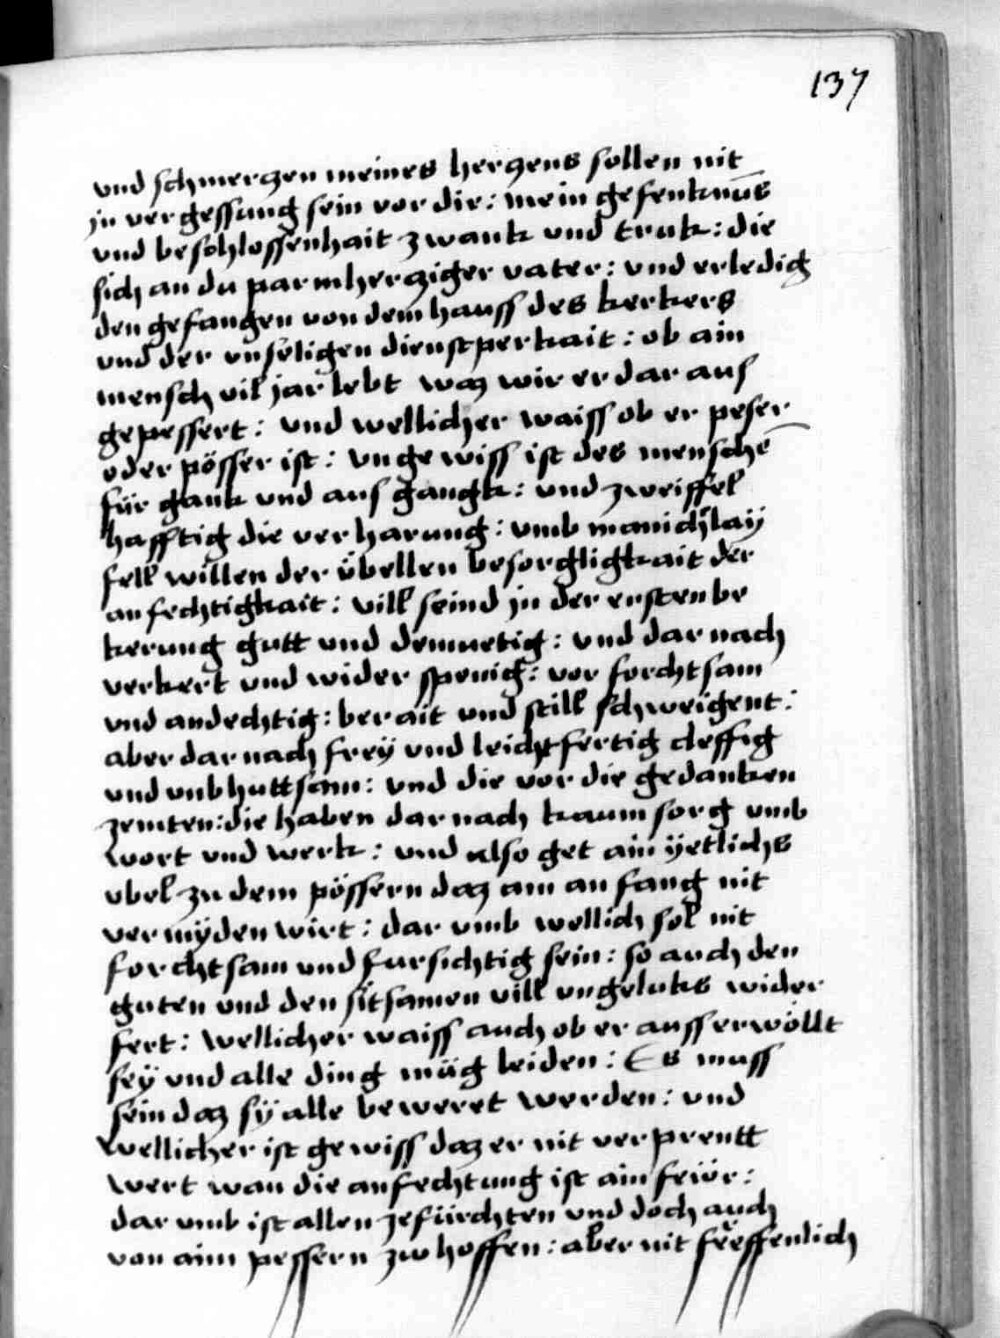 137
vnd schmerczen meines herczens sollen nit
jn vergessung sein vor dir: mein gefenknūs
vnd beschlossenhait zwank vnd truk: die
sich an du parmhercziger vater: vnd erledig
den gefangen von dem hauss des kerkers
vnd der vnsëligen dienstperkait: ob ain
mensch vil jar lebt waz wir er dar aus
gepessert: vnd wellicher waiss ob er peser
oder pösser ist: vngewiss ist des menschē
für gank vnd ausgangk: vnd zweiffel
hafftig die verharung: vmb manichslaÿ
fell willen der übellen besorgligkait der
anfechtigkait: vill seind jn der ersten be
kerung gutt vnd demuetig: vnd dar nach
verkert vnd widerspenig: vor forchtsam
vnd andechtig: berait vnd still schweigent:
aber dar nach freÿ vnd leichtfertig cleffig
vnd vnbhuttsam: vnd die vor die gedanken
zemten: die haben dar nach kaum sorg vmb
wort vnd werk: vnd also get ain ÿetlichs
vbel zu dem pössern daz am anfang nit
vermÿden wirt: dar vmb wellich sol nit
forchtsam vnd fursichtig sein: so auch den
guten vnd den sitsamen vill vngeluks wider
fert: wellicher waiss auch ob er ausserwöllt
seÿ vnd alle ding müg leiden: Es muss
sein daz sÿ alle beweret werden: vnd
wellicher ist gewiss daz er nit verprentt
wert wan die anfechtung ist ain feiör:
dar vmb ist allen zefürchten vnd doch auch
von aim pessern zw hoffen: aber nit freffenlich